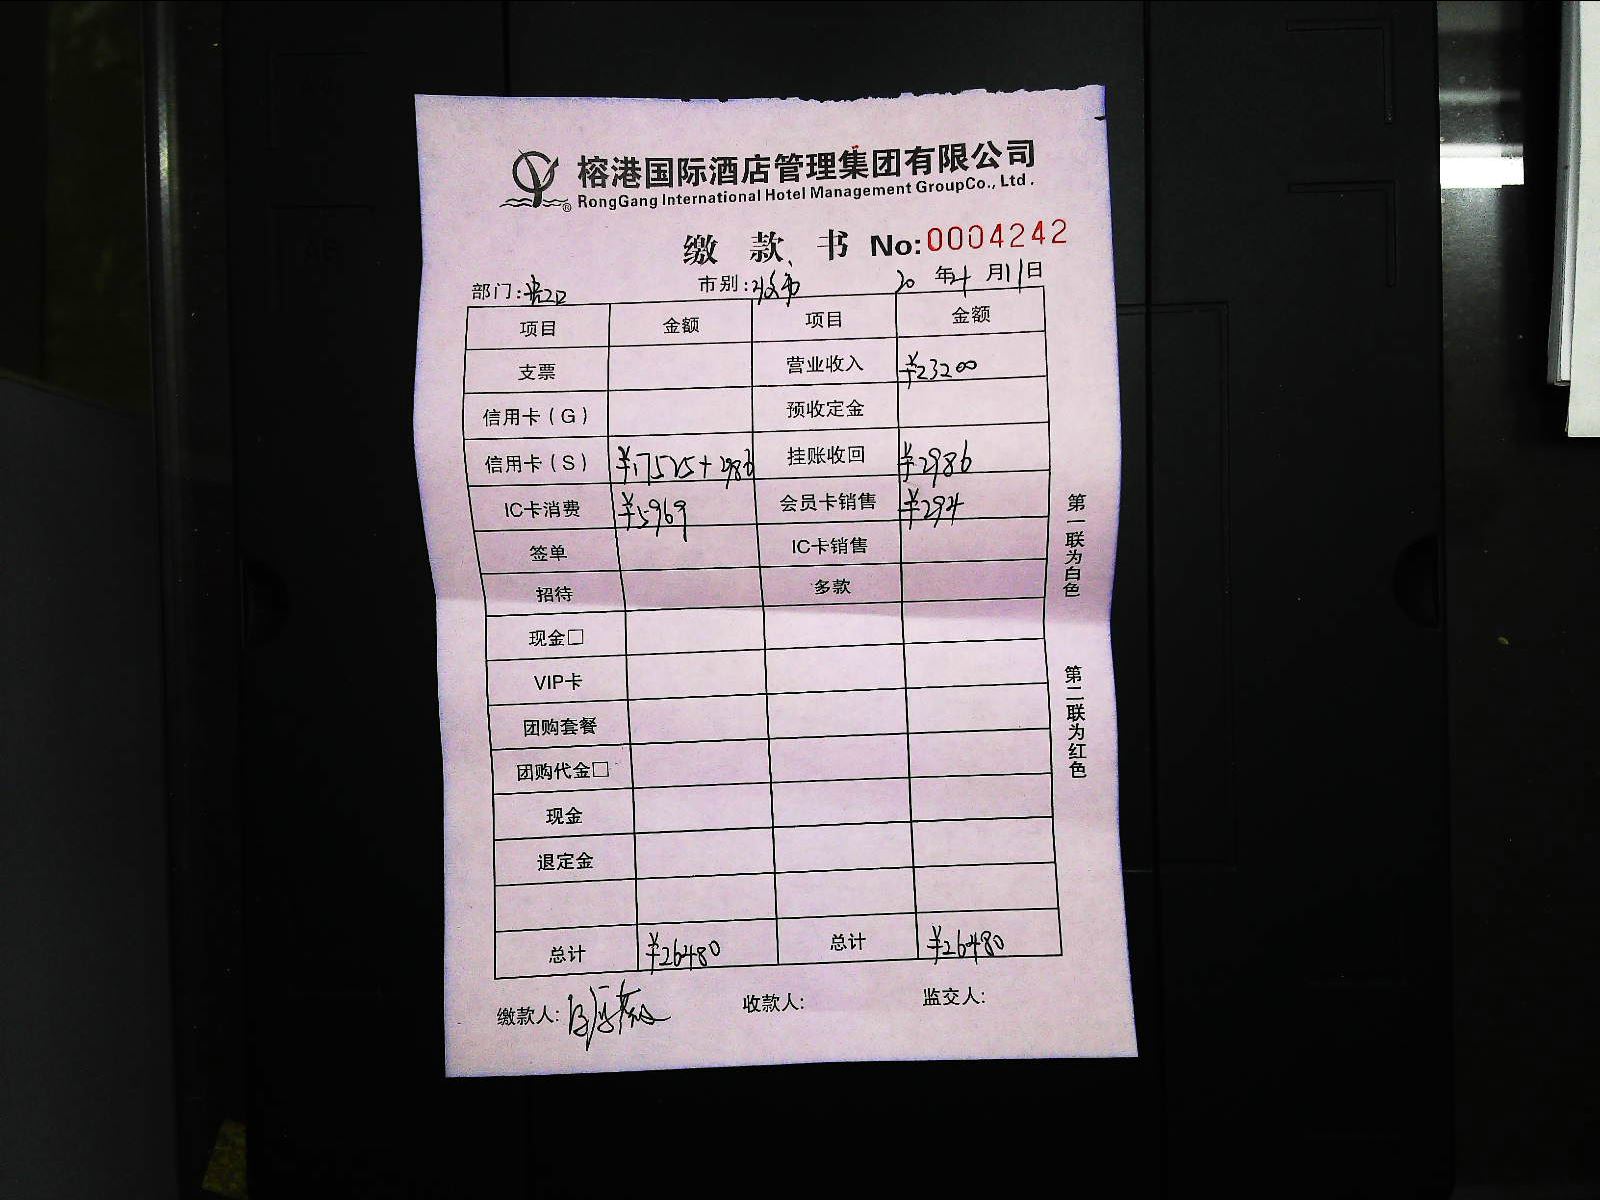 榕港国际酒店管理集团有限公司
RongGang International Hotel Management GroupCo., Ltd.
缴 款 书 No:0004242
部门: 市别: 20 年4月11日
项目 金额 项目 金额
支票 营业收入 ¥23200
信用卡(G) 预收定金
信用卡(S) ¥17525+2986 挂账收回 ¥2986
IC卡消费 ¥5969 会员卡销售 ¥294
签单 IC卡销售
招待 多款
现金□
VIP卡
团购套餐
团购代金□
现金
退定金
总计 ¥26480 总计 ¥26480
缴款人: 收款人: 监交人:
第一联为白色
第二联为红色